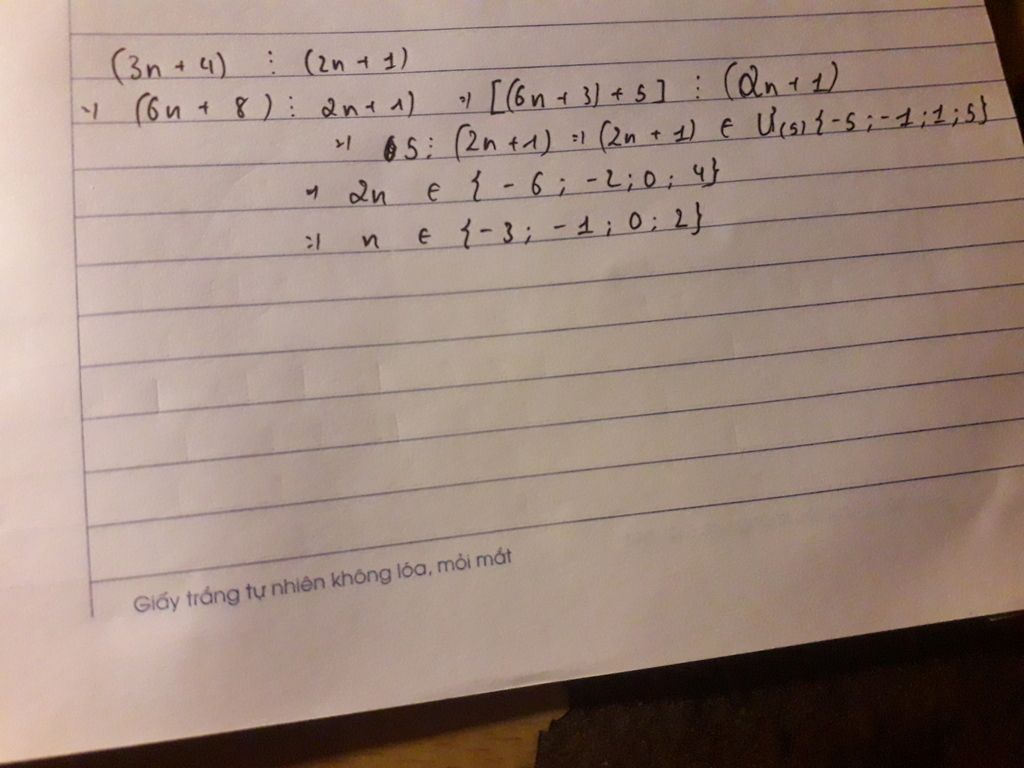 (3n + 4) ⋮ (2n + 1)
=> (6n + 8) ⋮ 2n + 1) => [(6n + 3) + 5] ⋮ (2n + 1)
=> 5 ⋮ (2n + 1) => (2n + 1) ∈ Ư(5) {-5 ; -1 ; 1 ; 5}
=> 2n ∈ {-6 ; -2 ; 0 ; 4}
=> n ∈ {-3 ; -1 ; 0 ; 2}
Giấy trắng tự nhiên không lóa, mỏi mắt